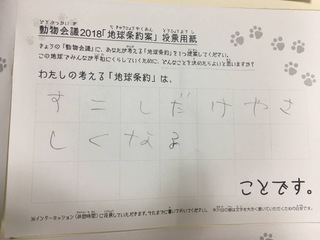 動物会議2018「地球条約案」投票用紙
きょうの「動物会議」に、あなたが考える「地球条約」を1つ提案してください。
この地球でみんなが平和にくらしていくために、どんなことを決めたらよいと思いますか?
わたしの考える「地球条約」は、
すこしだけやさ
しくなる
ことです。